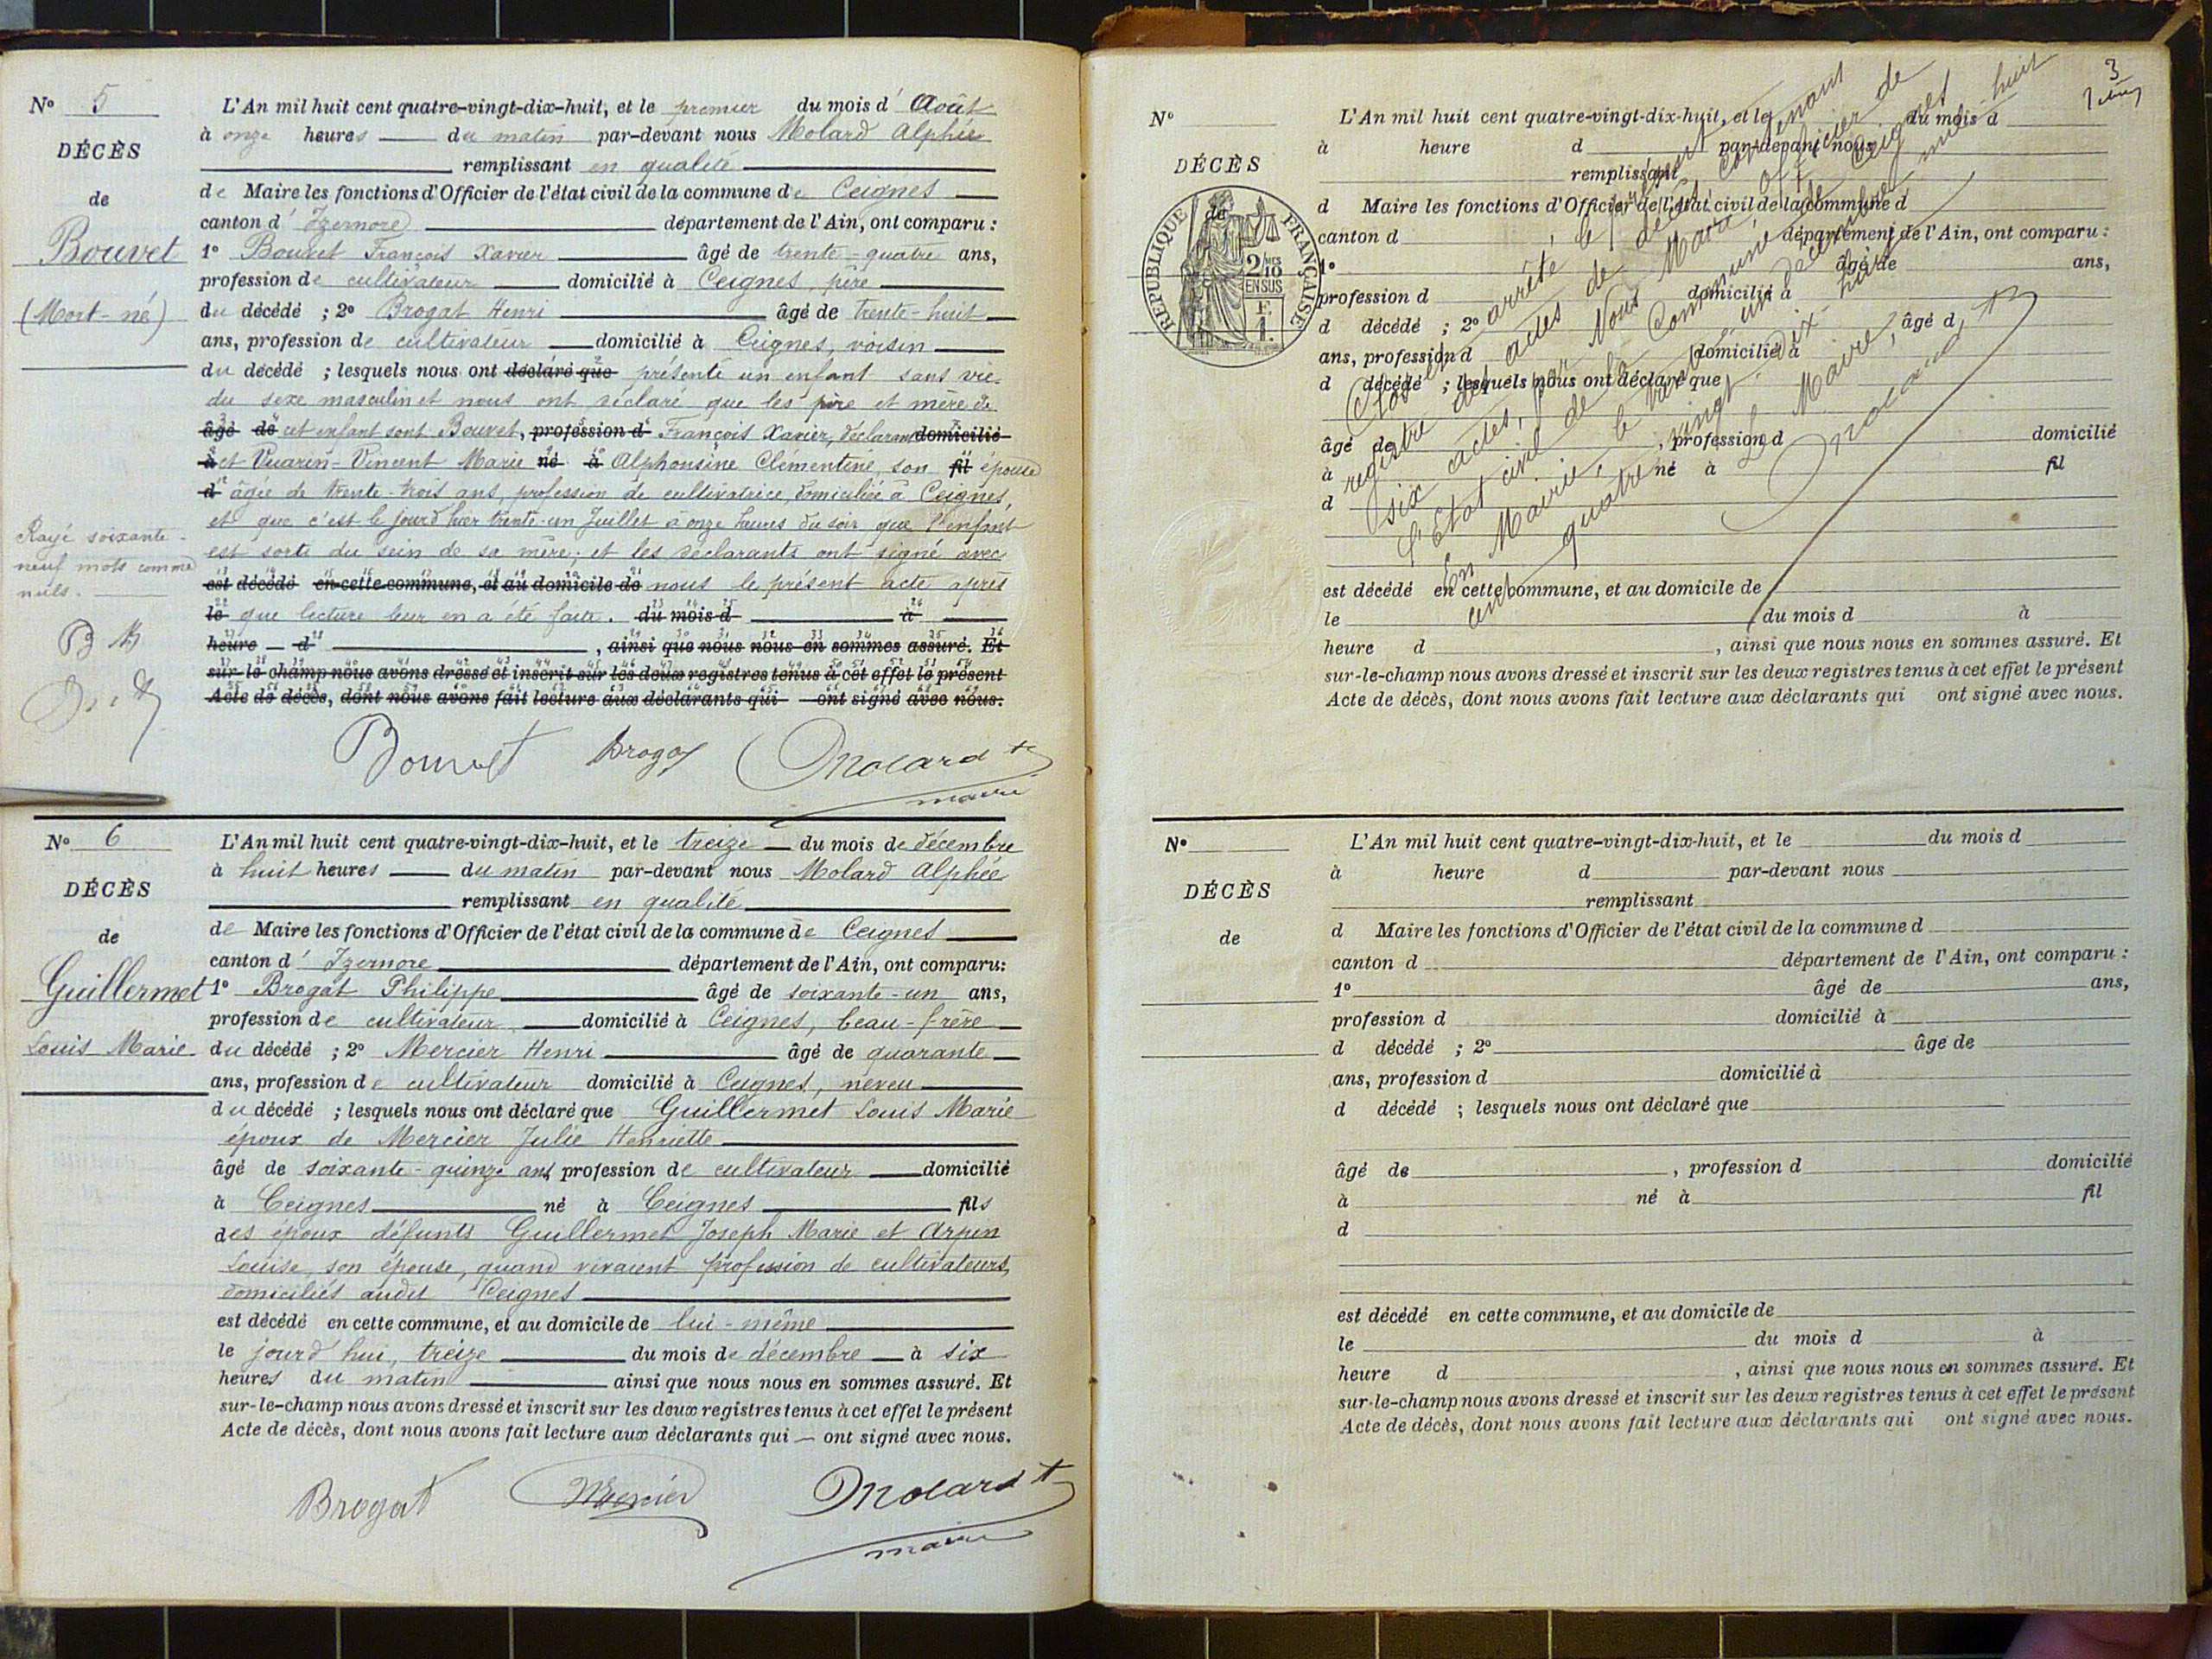 N° 5
DÉCÈS
de
Bouvet
(Mort-né)
Rayé soixante-
neuf mots comme
nuls.
B B
L'An mil huit cent quatre-vingt-dix-huit, et le premier du mois d' Août
à onze heures du matin par-devant nous Molard Alphée
remplissant en qualité
de Maire les fonctions d'Officier de l'état civil de la commune de Ceignes
canton d' Izernore département de l'Ain, ont comparu :
1° Bouvet François Xavier âgé de trente-quatre ans,
profession de cultivateur domicilié à Ceignes, père
du décédé ; 2° Brogat Henri âgé de trente-huit
ans, profession de cultivateur domicilié à Ceignes, voisin
du décédé ; lesquels nous ont déclaré que présenté un enfant sans vie
du sexe masculin et nous ont déclaré que les père et mère de
âgé de cet enfant sont Bouvet, profession d François Xavier, déclarant domicilié
à et Vuarin-Vincent Marie né à Alphonsine Clémentine, son fil épouse
d âgée de trente-trois ans, profession de cultivatrice, domiciliée à Ceignes,
et que c'est le jourd'hier trente-un Juillet à onze heures du soir que l'enfant
est sorti du sein de sa mère ; et les déclarants ont signé avec
est décédé en cette commune, et au domicile de nous le présent acte après
le que lecture leur en a été faite. du mois d à
heure d , ainsi que nous nous en sommes assuré. Et
sur-le-champ nous avons dressé et inscrit sur les deux registres tenus à cet effet le présent
Acte de décès, dont nous avons fait lecture aux déclarants qui ont signé avec nous.
Bouvet Brogat Molard
maire
N° 6
DÉCÈS
de
Guillermet
Louis Marie
L'An mil huit cent quatre-vingt-dix-huit, et le treize du mois de décembre
à huit heures du matin par-devant nous Molard Alphée
remplissant en qualité
de Maire les fonctions d'Officier de l'état civil de la commune de Ceignes
canton d' Izernore département de l'Ain, ont comparu:
1° Brogat Philippe âgé de soixante-un ans,
profession de cultivateur domicilié à Ceignes, beau-frère
du décédé ; 2° Mercier Henri âgé de quarante
ans, profession de cultivateur domicilié à Ceignes, neveu
du décédé ; lesquels nous ont déclaré que Guillermet Louis Marie
époux de Mercier Julie Henriette
âgé de soixante-quinze ans, profession de cultivateur domicilié
à Ceignes né à Ceignes fils
des époux défunts Guillermet Joseph Marie et Arpin
Louise, son épouse, quand vivaient profession de cultivateurs,
domiciliés audit Ceignes
est décédé en cette commune, et au domicile de lui-même
le jourd'hui, treize du mois de décembre à six
heures du matin ainsi que nous nous en sommes assuré. Et
sur-le-champ nous avons dressé et inscrit sur les deux registres tenus à cet effet le présent
Acte de décès, dont nous avons fait lecture aux déclarants qui ont signé avec nous.
Brogat Mercier Molard
maire
3
N°
DÉCÈS
de
RÉPUBLIQUE FRANÇAISE
2/10 EN SUS
1 F.
L'An mil huit cent quatre-vingt-dix-huit, et le du mois d
à heure d par-devant nous
remplissant
d Maire les fonctions d'Officier de l'état civil de la commune d
canton d département de l'Ain, ont comparu :
1° âgé de ans,
profession d domicilié à
d décédé ; 2° âgé d
ans, profession d domicilié à
d décédé ; lesquels nous ont déclaré que
âgé de , profession d domicilié
à né à fil
d
est décédé en cette commune, et au domicile de
le du mois d à
heure d , ainsi que nous nous en sommes assuré. Et
sur-le-champ nous avons dressé et inscrit sur les deux registres tenus à cet effet le présent
Acte de décès, dont nous avons fait lecture aux déclarants qui ont signé avec nous.
Clos et arrêté le présent
registre des actes de décès, contenant
six actes, par Nous Maire, Officier de
l'Etat civil de la Commune de Ceignes
En Mairie, le trente-un décembre mil-huit
cent quatre vingt-dix-huit
Le Maire,
Molard
N°
DÉCÈS
de
L'An mil huit cent quatre-vingt-dix-huit, et le du mois d
à heure d par-devant nous
remplissant
d Maire les fonctions d'Officier de l'état civil de la commune d
canton d département de l'Ain, ont comparu :
1° âgé de ans,
profession d domicilié à
d décédé ; 2° âgé de
ans, profession d domicilié à
d décédé ; lesquels nous ont déclaré que
âgé de , profession d domicilié
à né à fil
d
est décédé en cette commune, et au domicile de
le du mois d à
heure d , ainsi que nous nous en sommes assuré. Et
sur-le-champ nous avons dressé et inscrit sur les deux registres tenus à cet effet le présent
Acte de décès, dont nous avons fait lecture aux déclarants qui ont signé avec nous.